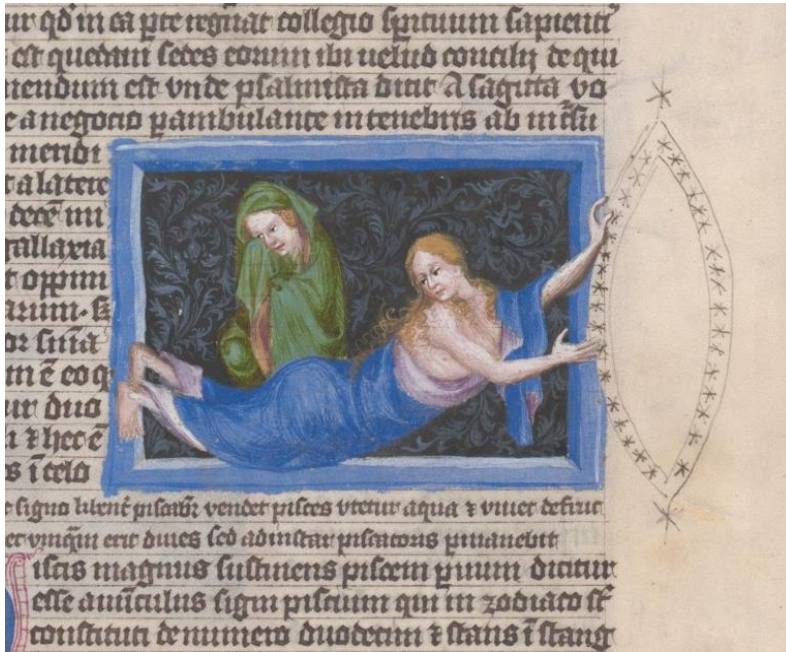 ur qd' in ea pte regnat collegio spirituum sapienti
est quedam sedes eorum ibi uelud concilij de qui
mendum est vnde psalmista dicit A sagitta vo
e a negocio pambulante in tenebris ab incsu
meridi
t a latere
decē mi
gallaxia
t oppim
arum
or
m ē eo q
ur duo
⁊ hec ē
s ī celo
signo pisces vtetur aqua ⁊ viuet
erit diues sed ad instar piscatoris pmanebit
iscis magnus sustinens piscem paruum dicitur
esse auūculus signi piscium qui in zodiaco sr
constituti de numero duodecim ⁊ stans ī stang